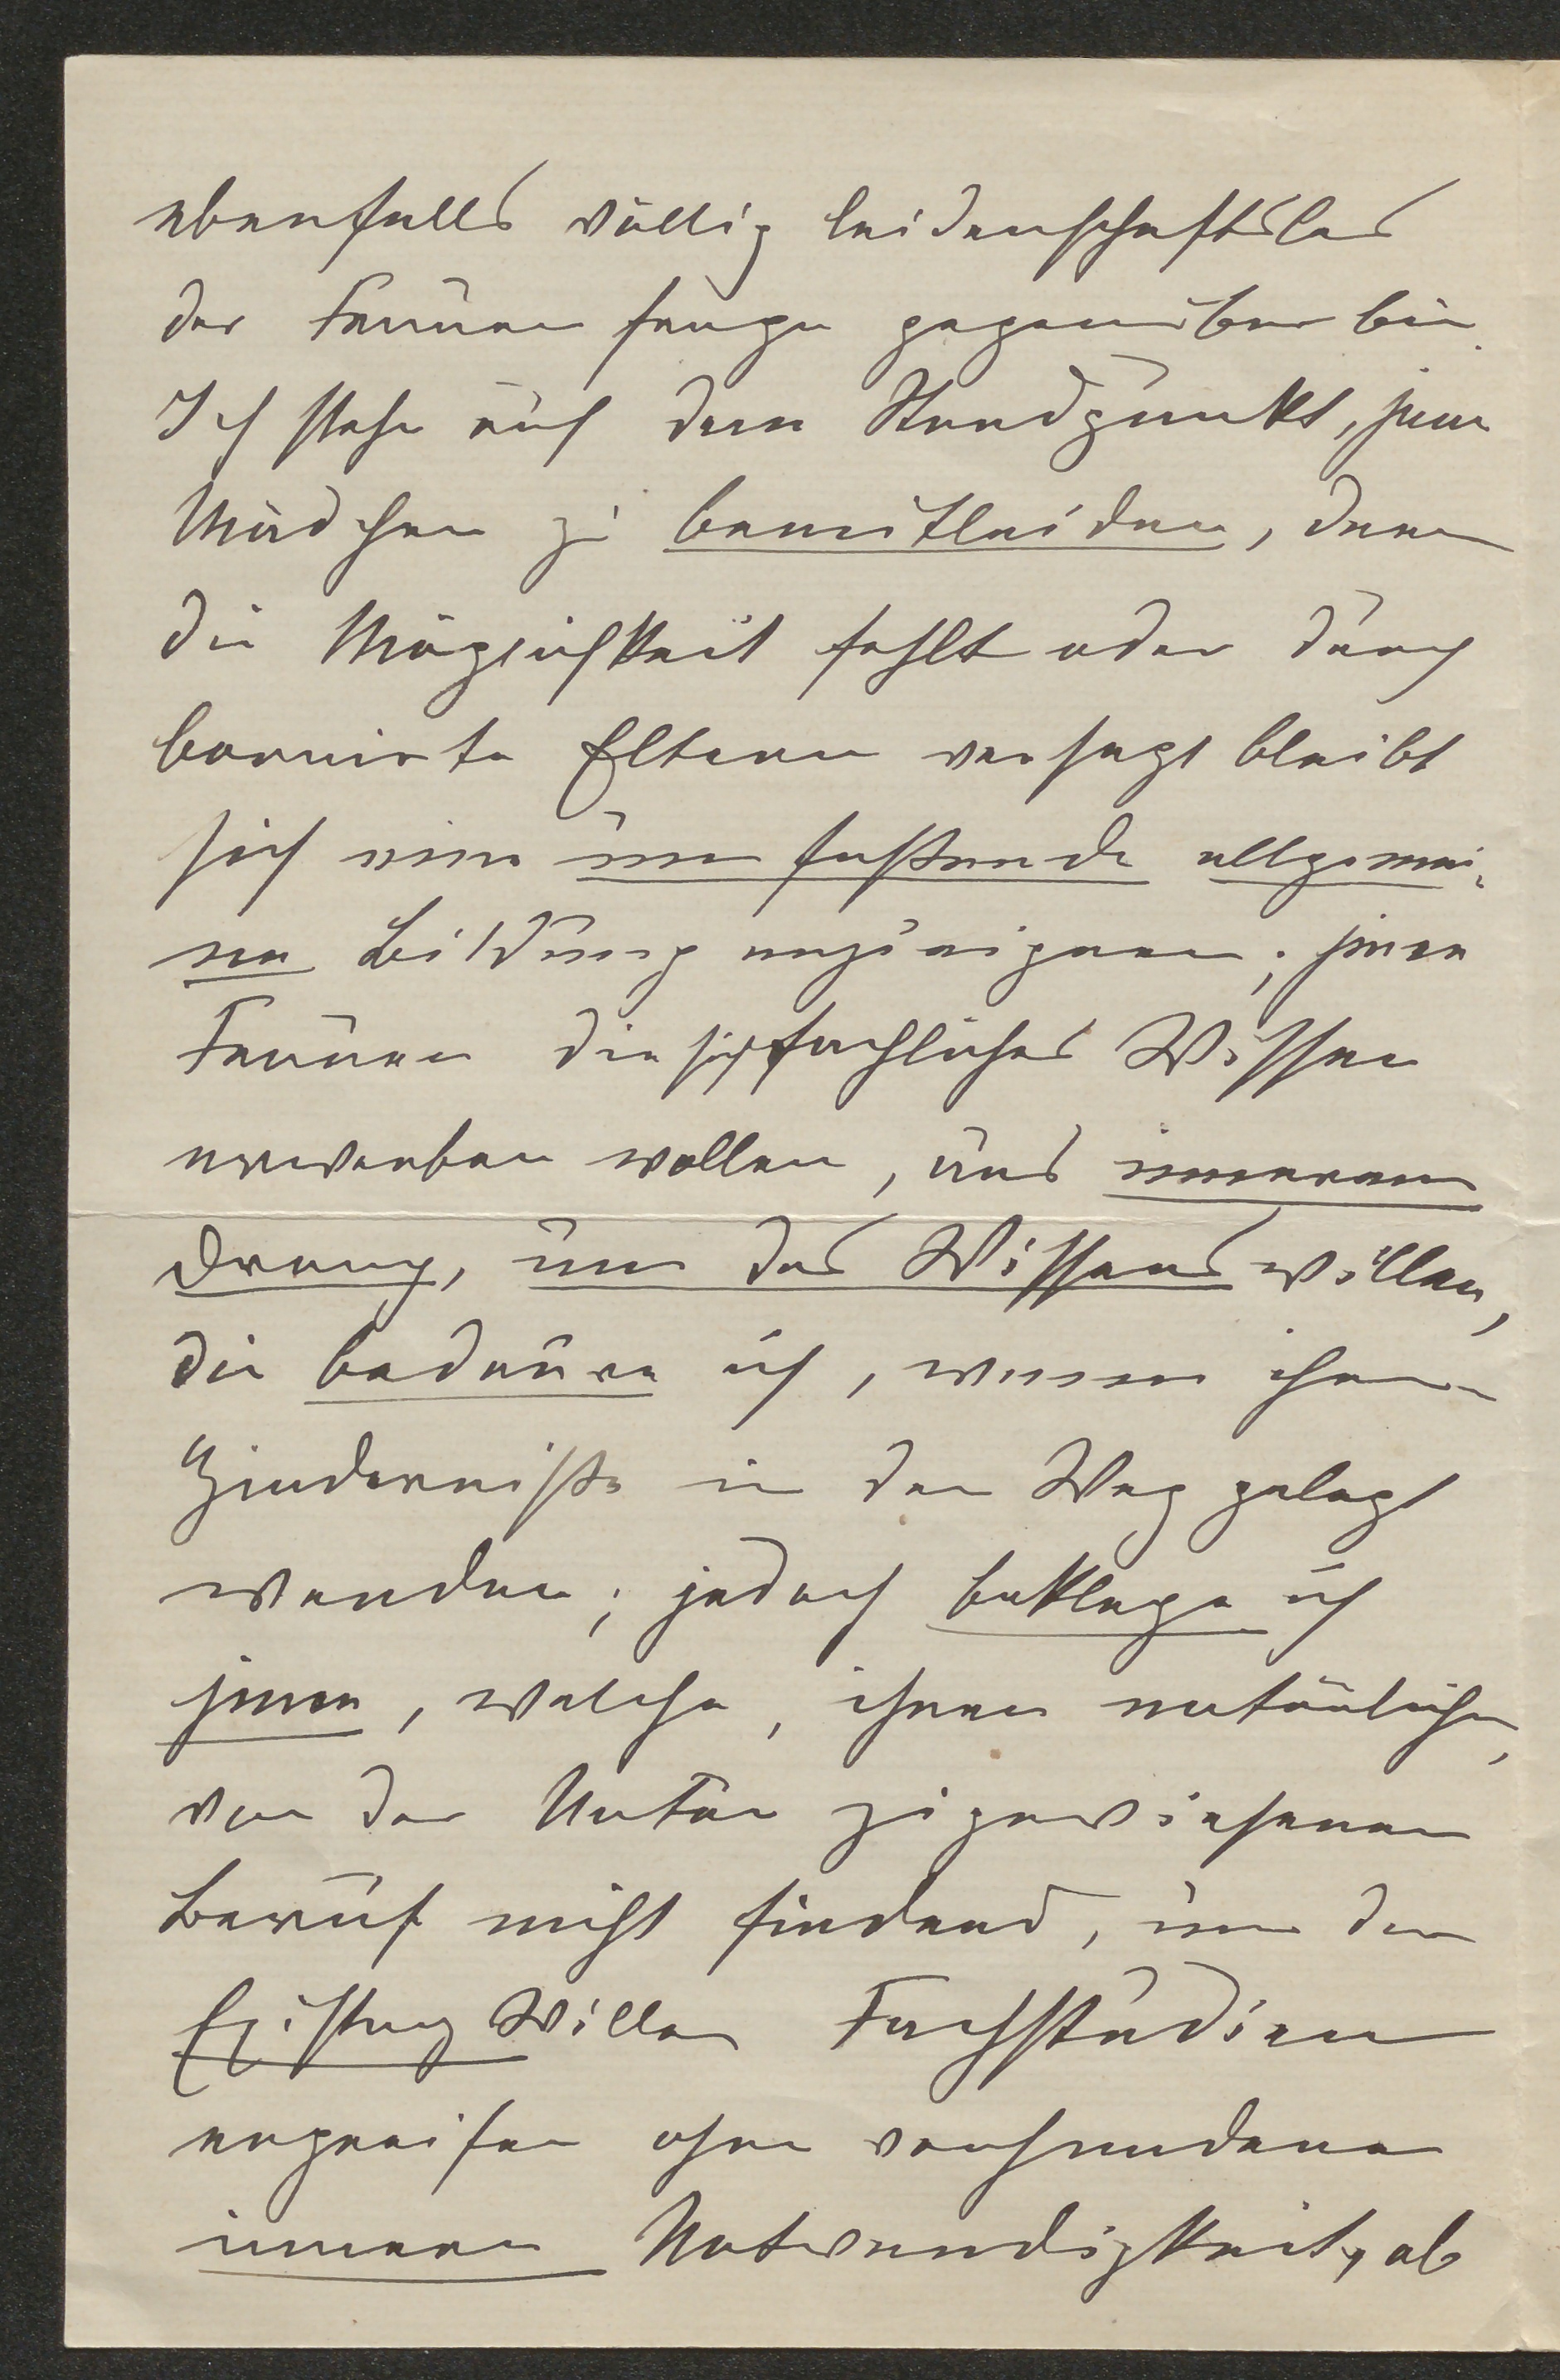 ebenfalls völlig leidenschaftslos
der Frauenfrage gegenüber bin.
Ich stehe auf dem Standpunkt, jene
Mädchen zu bemitleiden, denen
die Möglichkeit fehlt oder durch
bornirte Eltern versagt bleibt
sich eine umfaßende allgemei-
ne Bildung anzueignen; jene
Frauen die sich fachliches Wissen
erwerben wollen, aus innerem
Drang, um des Wissens willen,
die bedaure ich, wenn ihnen
Hinderniße in den Weg gelegt
werden; jedoch beklage ich
jene, welche, ihren natürlichen,
von der Natur zugewiesenen
Beruf nicht findend, um der
Existenz Willen Fachstudien
ergreifen ohne vorhandene
innere Notwendigkeit, ob